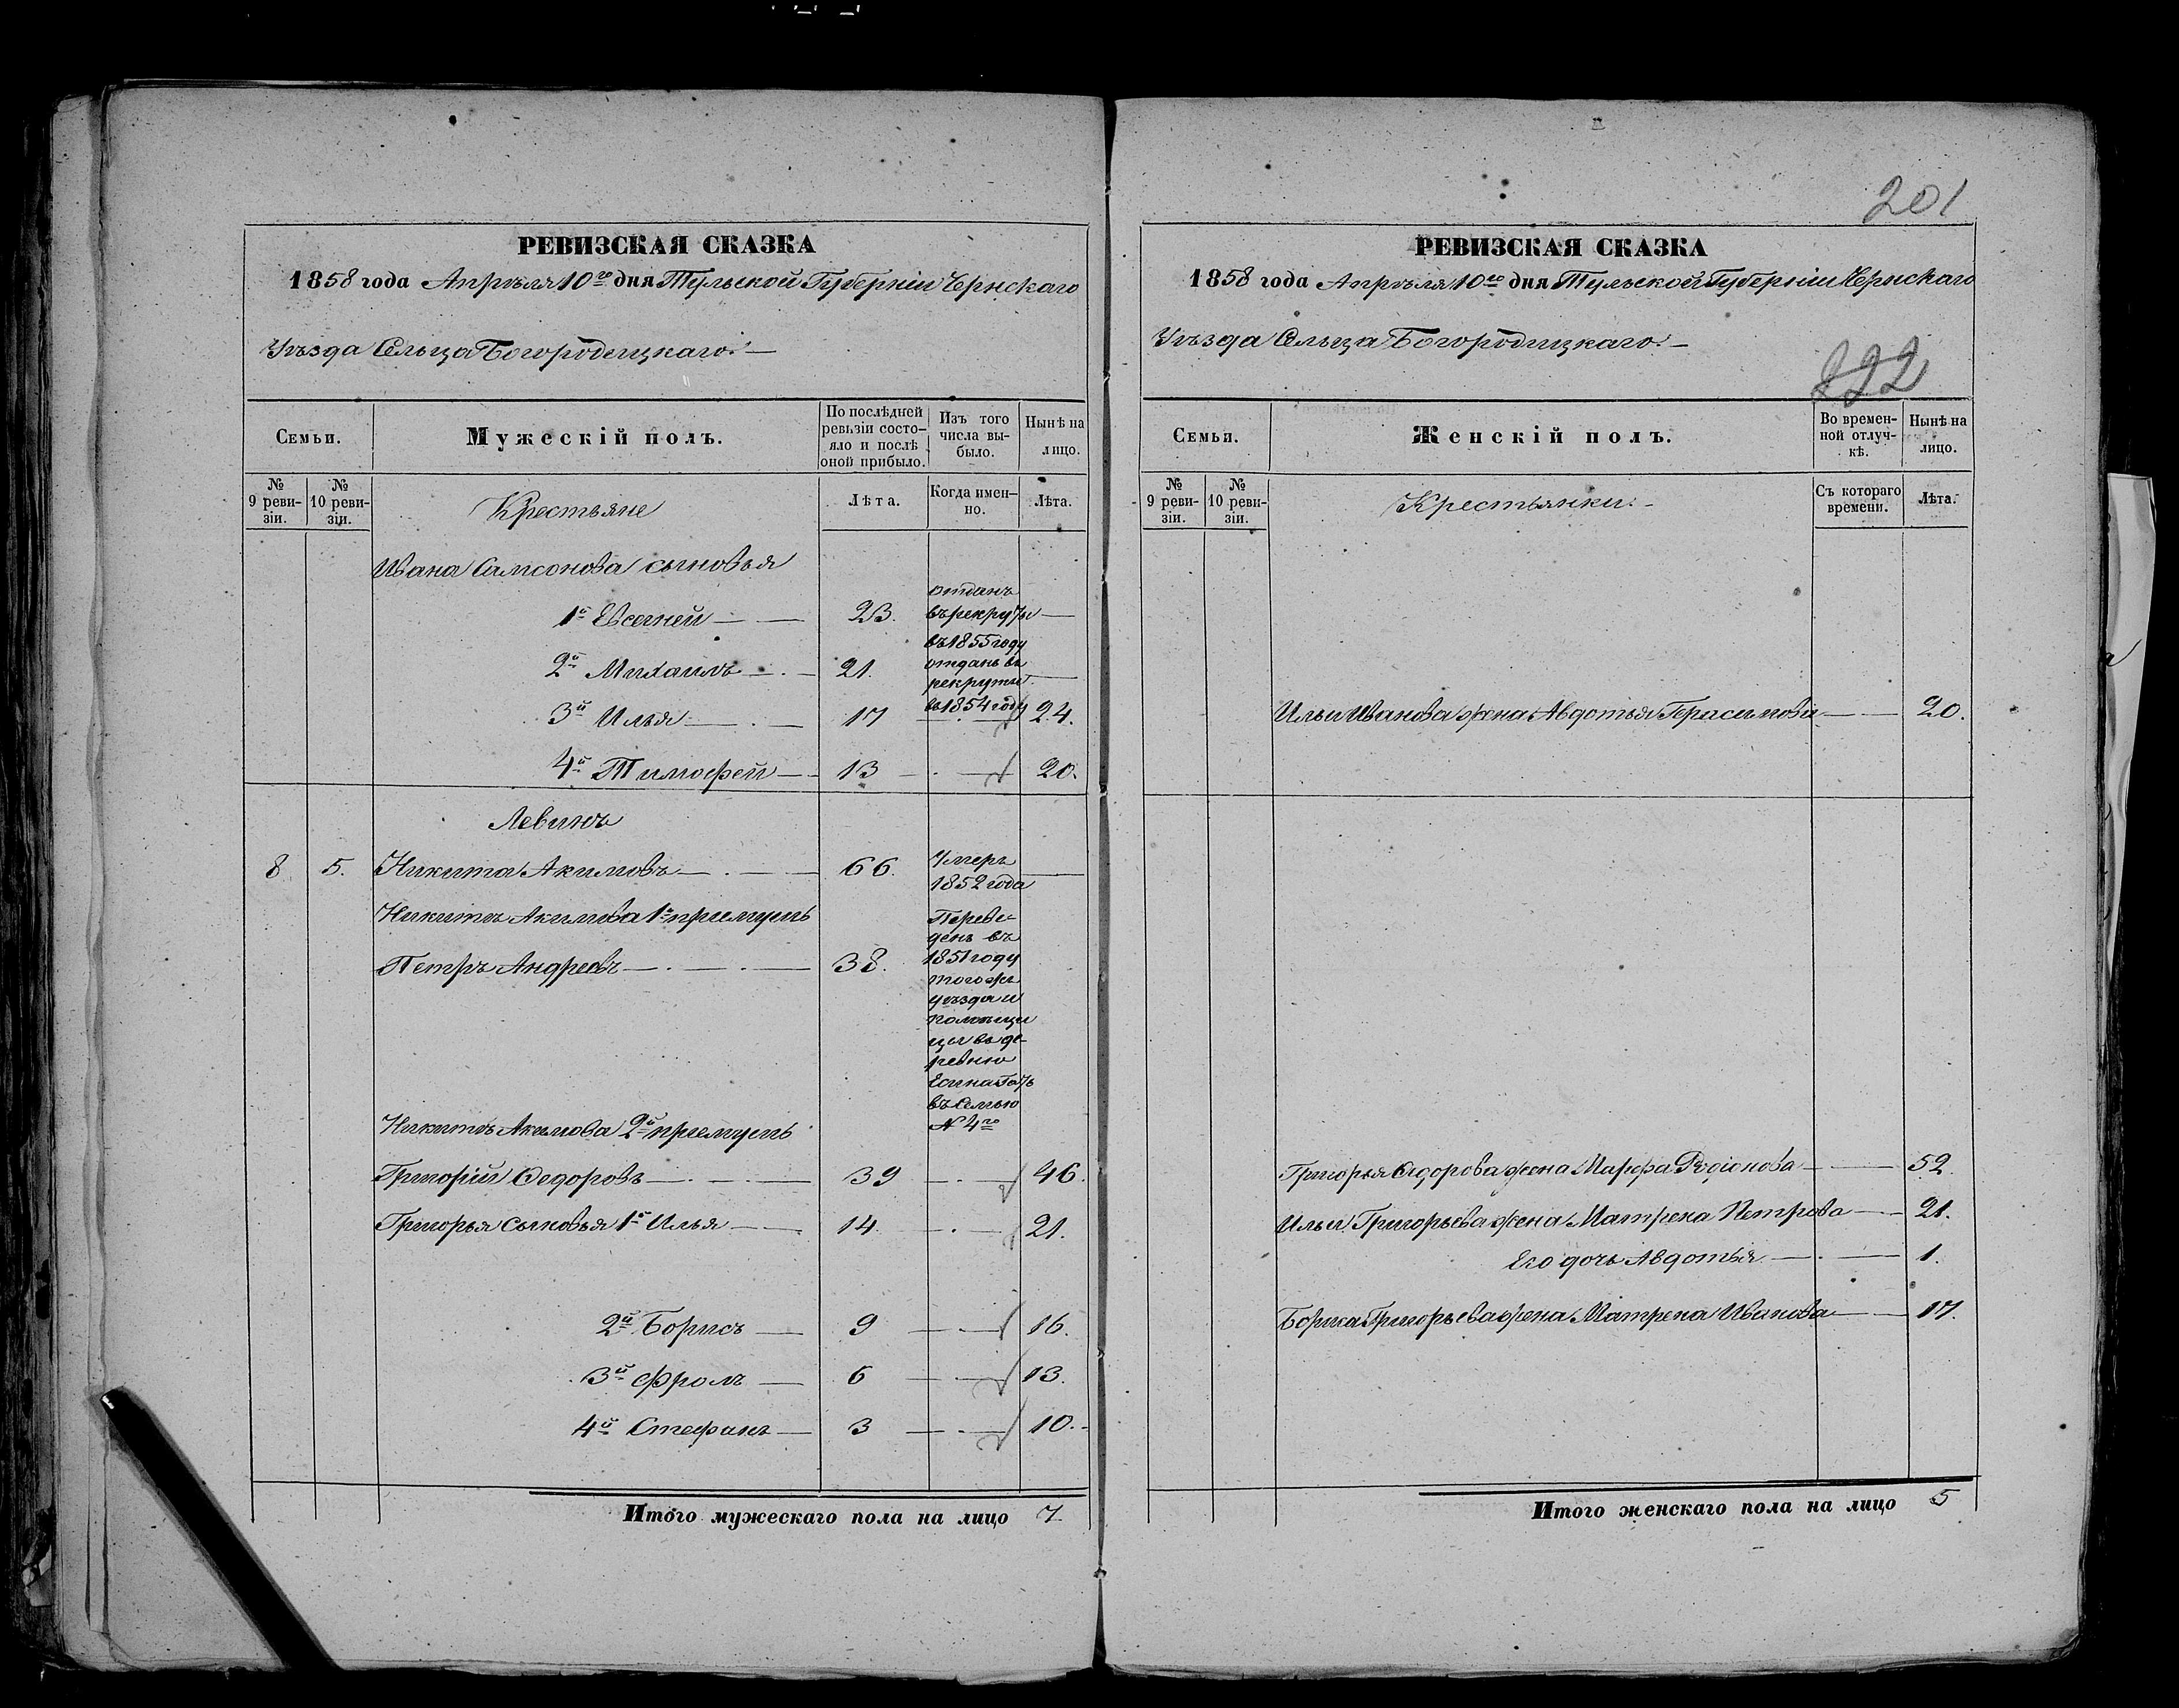 РЕВИЗСКАЯ СКАЗКА
1858 года Апрѣля 10го дня Тульской Губерніи Чернскаго
Уѣзда Сельца Богородицкаго.
Семьи.
Мужескій полъ.
По послѣдней ревизіи состо-
яло и послѣ
оной прибыло.
Изъ того
числа вы-
было.
Нынѣ на
лицо.
№
9 реви-
зіи.
№
10 реви-
зіи.
Крестьяне
Лѣта.
Когда имен-
но.
Лѣта.
Ивана Самсонова сыновья
1й Евсегней 23. отданъ
въ рекруты
въ 1855 году
2й Михаилъ 21. отданъ въ
рекруты
въ 1854 году
3й Илья 17 24.
4й Тимофей 13 20.
Левинъ
8 5. Никита Акимовъ 66. Умеръ
1852 года
Никиты Акимова 1й приемушъ
Петръ Андреевъ 38. Переве-
денъ въ
1851 году
того жъ
уѣзда и
помѣщи
цы въ де-
ревню
въ Семью
№ 4го
Никиты Акимова 2й приемушъ
Григорій Федоровъ 39 46.
Григорья сыновья 1й Илья 14 21.
2й Борисъ 9 16.
3й Фролъ 6 13.
4й Стефанъ 3 10.
Итого мужескаго пола на лицо 7
201
РЕВИЗСКАЯ СКАЗКА
1858 года Апрѣля 10го дня Тульской Губерніи Чернскаго
Уѣзда Сельца Богородицкаго.
222
Семьи.
Женскій полъ.
Во времен-
ной отлуч-
кѣ.
Нынѣ на
лицо.
№
9 реви-
зіи.
№
10 реви-
зіи.
Крестьянки.
Съ котораго
времени.
Лѣта.
Ильи Иванова жена Авдотья Герасимова 20.
Григорья Федорова жена Марфа Родіонова 52.
Ильи Григорьева жена Матрена Петрова 21.
Его дочь Авдотья 1.
Бориса Григорьева жена Матрена Иванова 17.
Итого женскаго пола на лицо 5